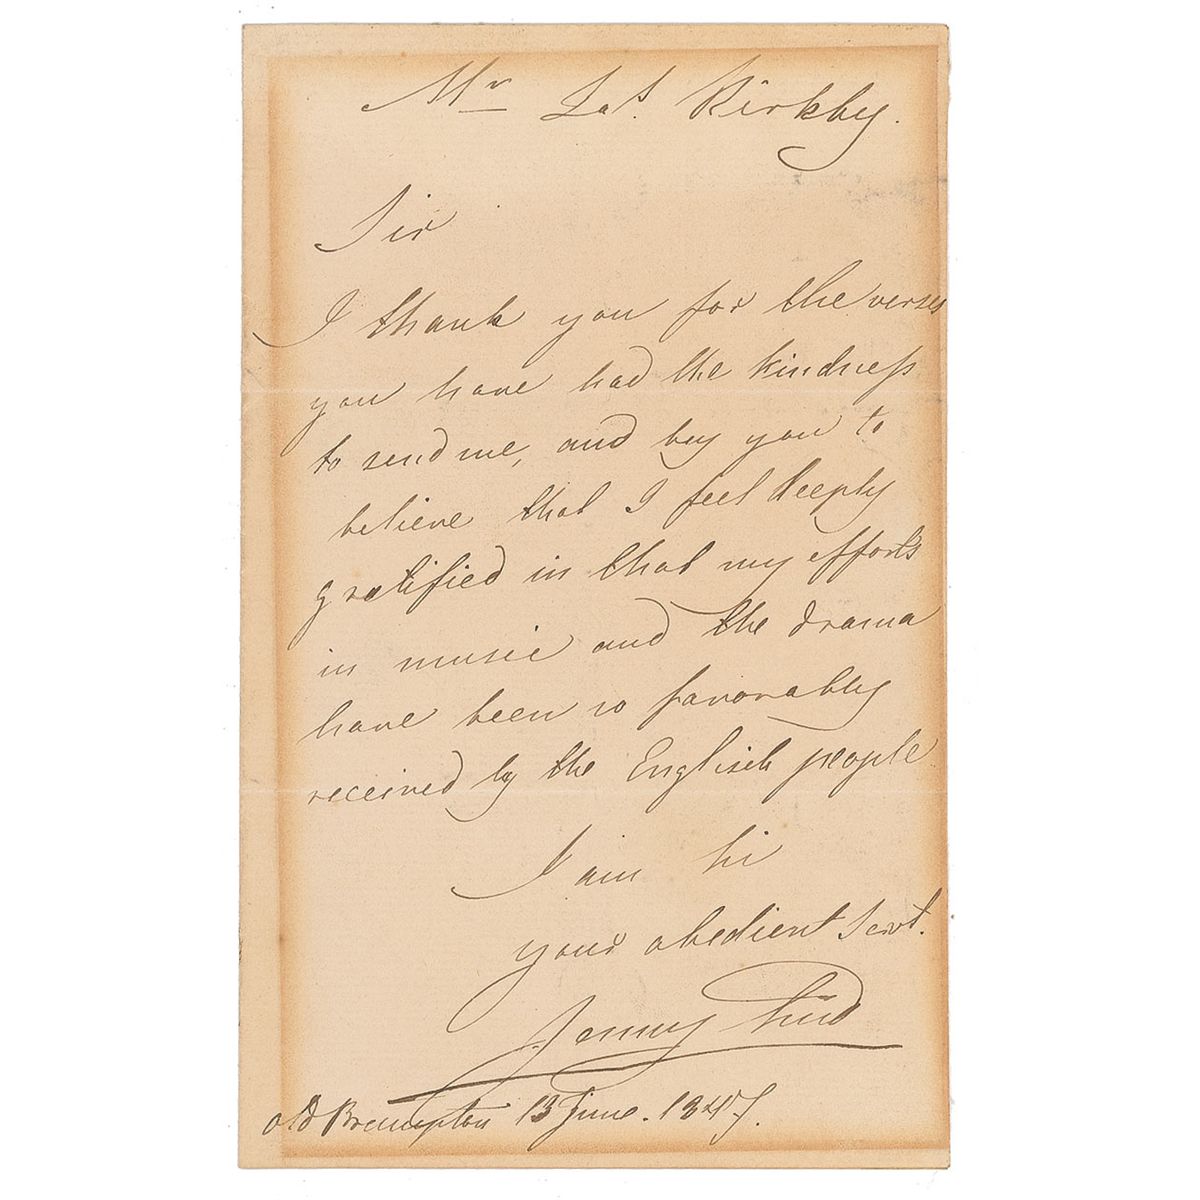 Mr Jas. Kirkby.
Sir
I thank you for the verses
you have had the kindness
to send me, and beg you to
believe that I feel deeply
gratified in that my efforts
in music and the drama
have been so favorably
received by the English people
I am Si
your obedient Servt.
Jenny Lind
old Brompton 13 June. 1847.